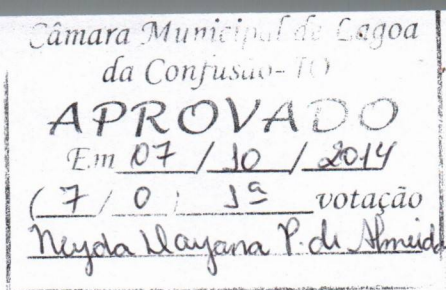 Câmara Municipal de Lagoa
da Confusão-TO
APROVADO
Em 07 / 10 / 2014
( 7 / 0 ) 1ª votação
Neyda Dayana P. de Almeida